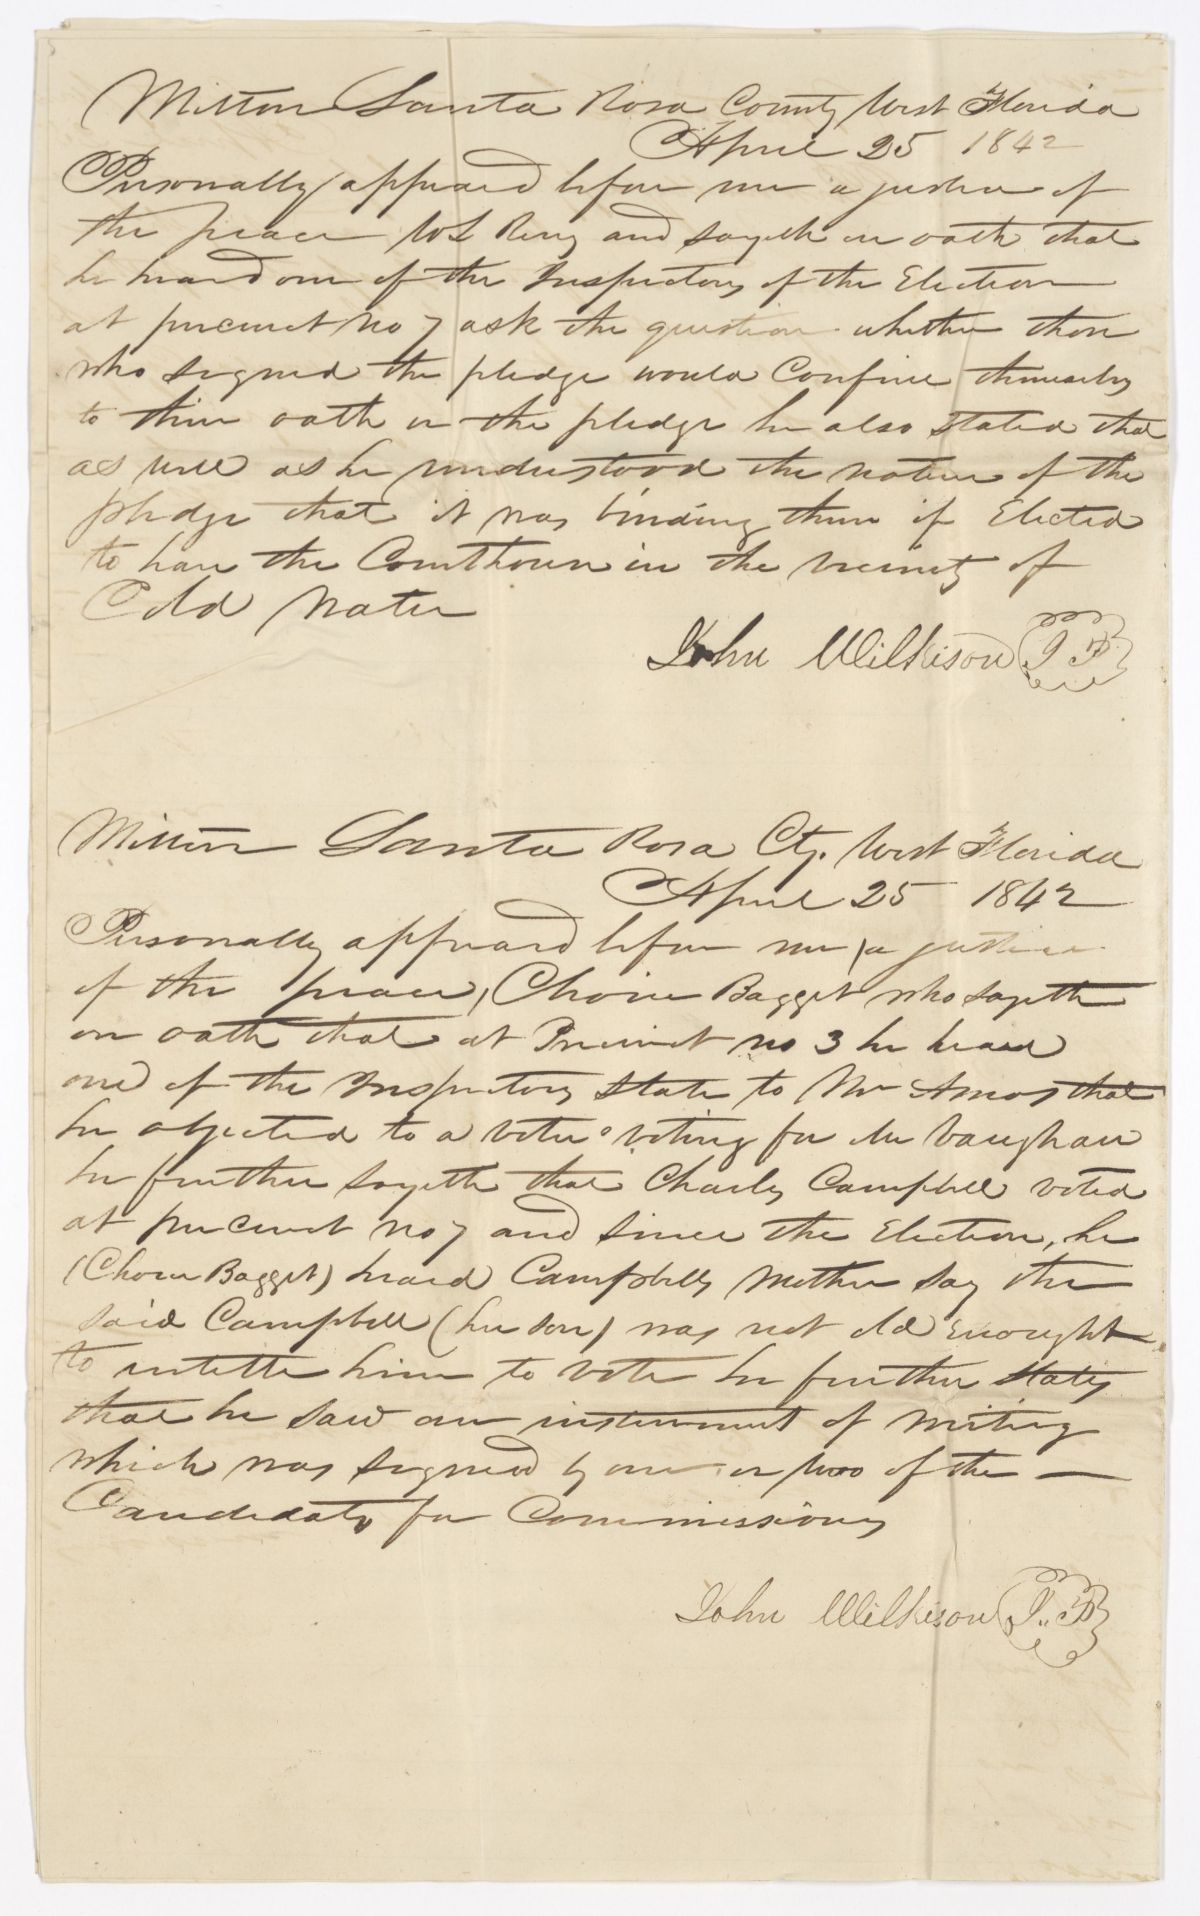 Milton Santa Rosa County West Florida
April 25 1842
Personally appeard before me a justice of
the peace W L Reny and sayeth on oath that
he heard one of the Inspectors of the Election
at precinct no 7 ask the question whether those
who signed the pledge would Confine themselvs
to their oath or the pledge he also stated that
as well as he understood the nature of the
pledge that it was binding them if Elected
to have the Courthouse in the vicinity of
Cold Water
John Wilkison J P
Milton Santa Rosa Cty. West Florida
April 25 1842
Personally appeard before me, a justice
of the peace, Choice Bagget who sayeth
on oath that at Precinct no 3 he heard
one of the Inspectors state to Mr Amos that
he objected to a voter voting for Mr Vaughan
he further sayeth that Charles Campbell voted
at precinct no 7 and since the Election, he
(Choice Bagget) heard Campbells Mother say the
said Campbell (her son) was not old Enought
to intitle him to vote he further states
that he saw an instrument of writing
which was signed by one or two of the
Candidats for Commissioners
John Wilkison J. P